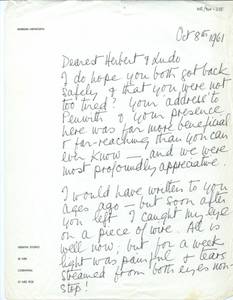 BARBARA HEPWORTH
Oct 8th 1961
Dearest Herbert & Ludo
I do hope you both got back
safely, & that you were not
too tired? Your address to
Penwith & your presence
here was far more beneficial
& far-reaching than you can
ever know — and we were
most profoundly appreciative.
I would have written to you
ages ago — but soon after
you left I caught my eye
on a piece of wire. All is
well now; but for a week
light was painful & tears
streamed from both eyes non-
stop!
TREWYN STUDIO
ST IVES
CORNWALL
ST IVES